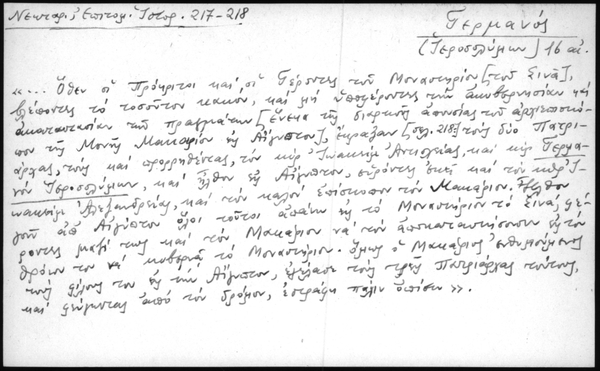 Νεκταρ., Ἐπιτομ. Ἱστορ. 217-218
Γερμανός
(Ἱεροσολύμων) 16 αἰ.
«... Ὅθεν οἱ Πρόκριτοι καὶ οἱ Γέροντες τοῦ Μοναστηρίου [τοῦ Σινᾶ],
βλέποντες τὸ τοσοῦτον κακόν, καὶ μὴ ὑποφέροντες τὴν ἀκυβερνησίαν καὶ
ἀκαταστασίαν τῶν πραγμάτων [ἕνεκα τῆς διαρκοῦς ἀπουσίας τοῦ ἀρχιεπισκό-
που τῆς Μονῆς Μακαρίου εἰς Αἴγυπτον], ἔκραξαν [σελ. 218] τοὺς δύο Πατρι-
άρχας, τοὺς καὶ προρρηθέντας, τὸν κὺρ Ἰωακεὶμ Ἀντιοχείας, καὶ κὺρ Γερμα-
νὸν Ἱεροσολύμων, καὶ ἦλθον εἰς Αἴγυπτον, εὑρόντες ἐκεῖ καὶ τὸν κὺρ Ἰ-
ωακεὶμ Ἀλεξανδρείας, καὶ τὸν καλὸν ἐπίσκοπον τὸν Μακάριον. Ἦλθον
ἀπ' Αἴγυπτον ὅλοι τοῦτοι ἀπάνω εἰς τὸ Μοναστήριον τὸ Σινᾶ, φέ-
ροντες μαζί τους καὶ τὸν Μακάριον νὰ τὸν ἀποκαταστήσουν εἰς τὸν
θρόνον του νὰ κυβερνᾷ τὸ Μοναστήριον. Ὅμως ὁ Μακάριος ἐνθυμούμενος
τοὺς φίλους του εἰς τὴν Αἴγυπτον, ἐγέλασε τοὺς τρεῖς Πατριάρχας τούτους,
καὶ φεύγωντας ἀπὸ τὸν δρόμον, ἐστράφη πάλιν ὀπίσω».